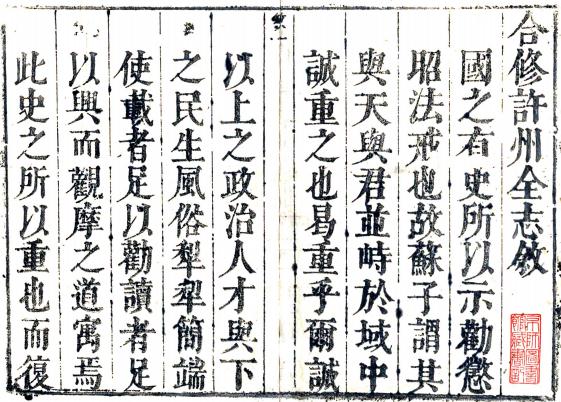 合修許州全志敘
國之有史所以示勸懲
昭法戒也故蘇子謂其
與天與君並峙於域中
誠重之也曷重乎爾誠
以上之政治人才與下
之民生風俗犁犁簡端
使載者足以勸讀者足
以興而觀摩之道寓焉
此史之所以重也而復